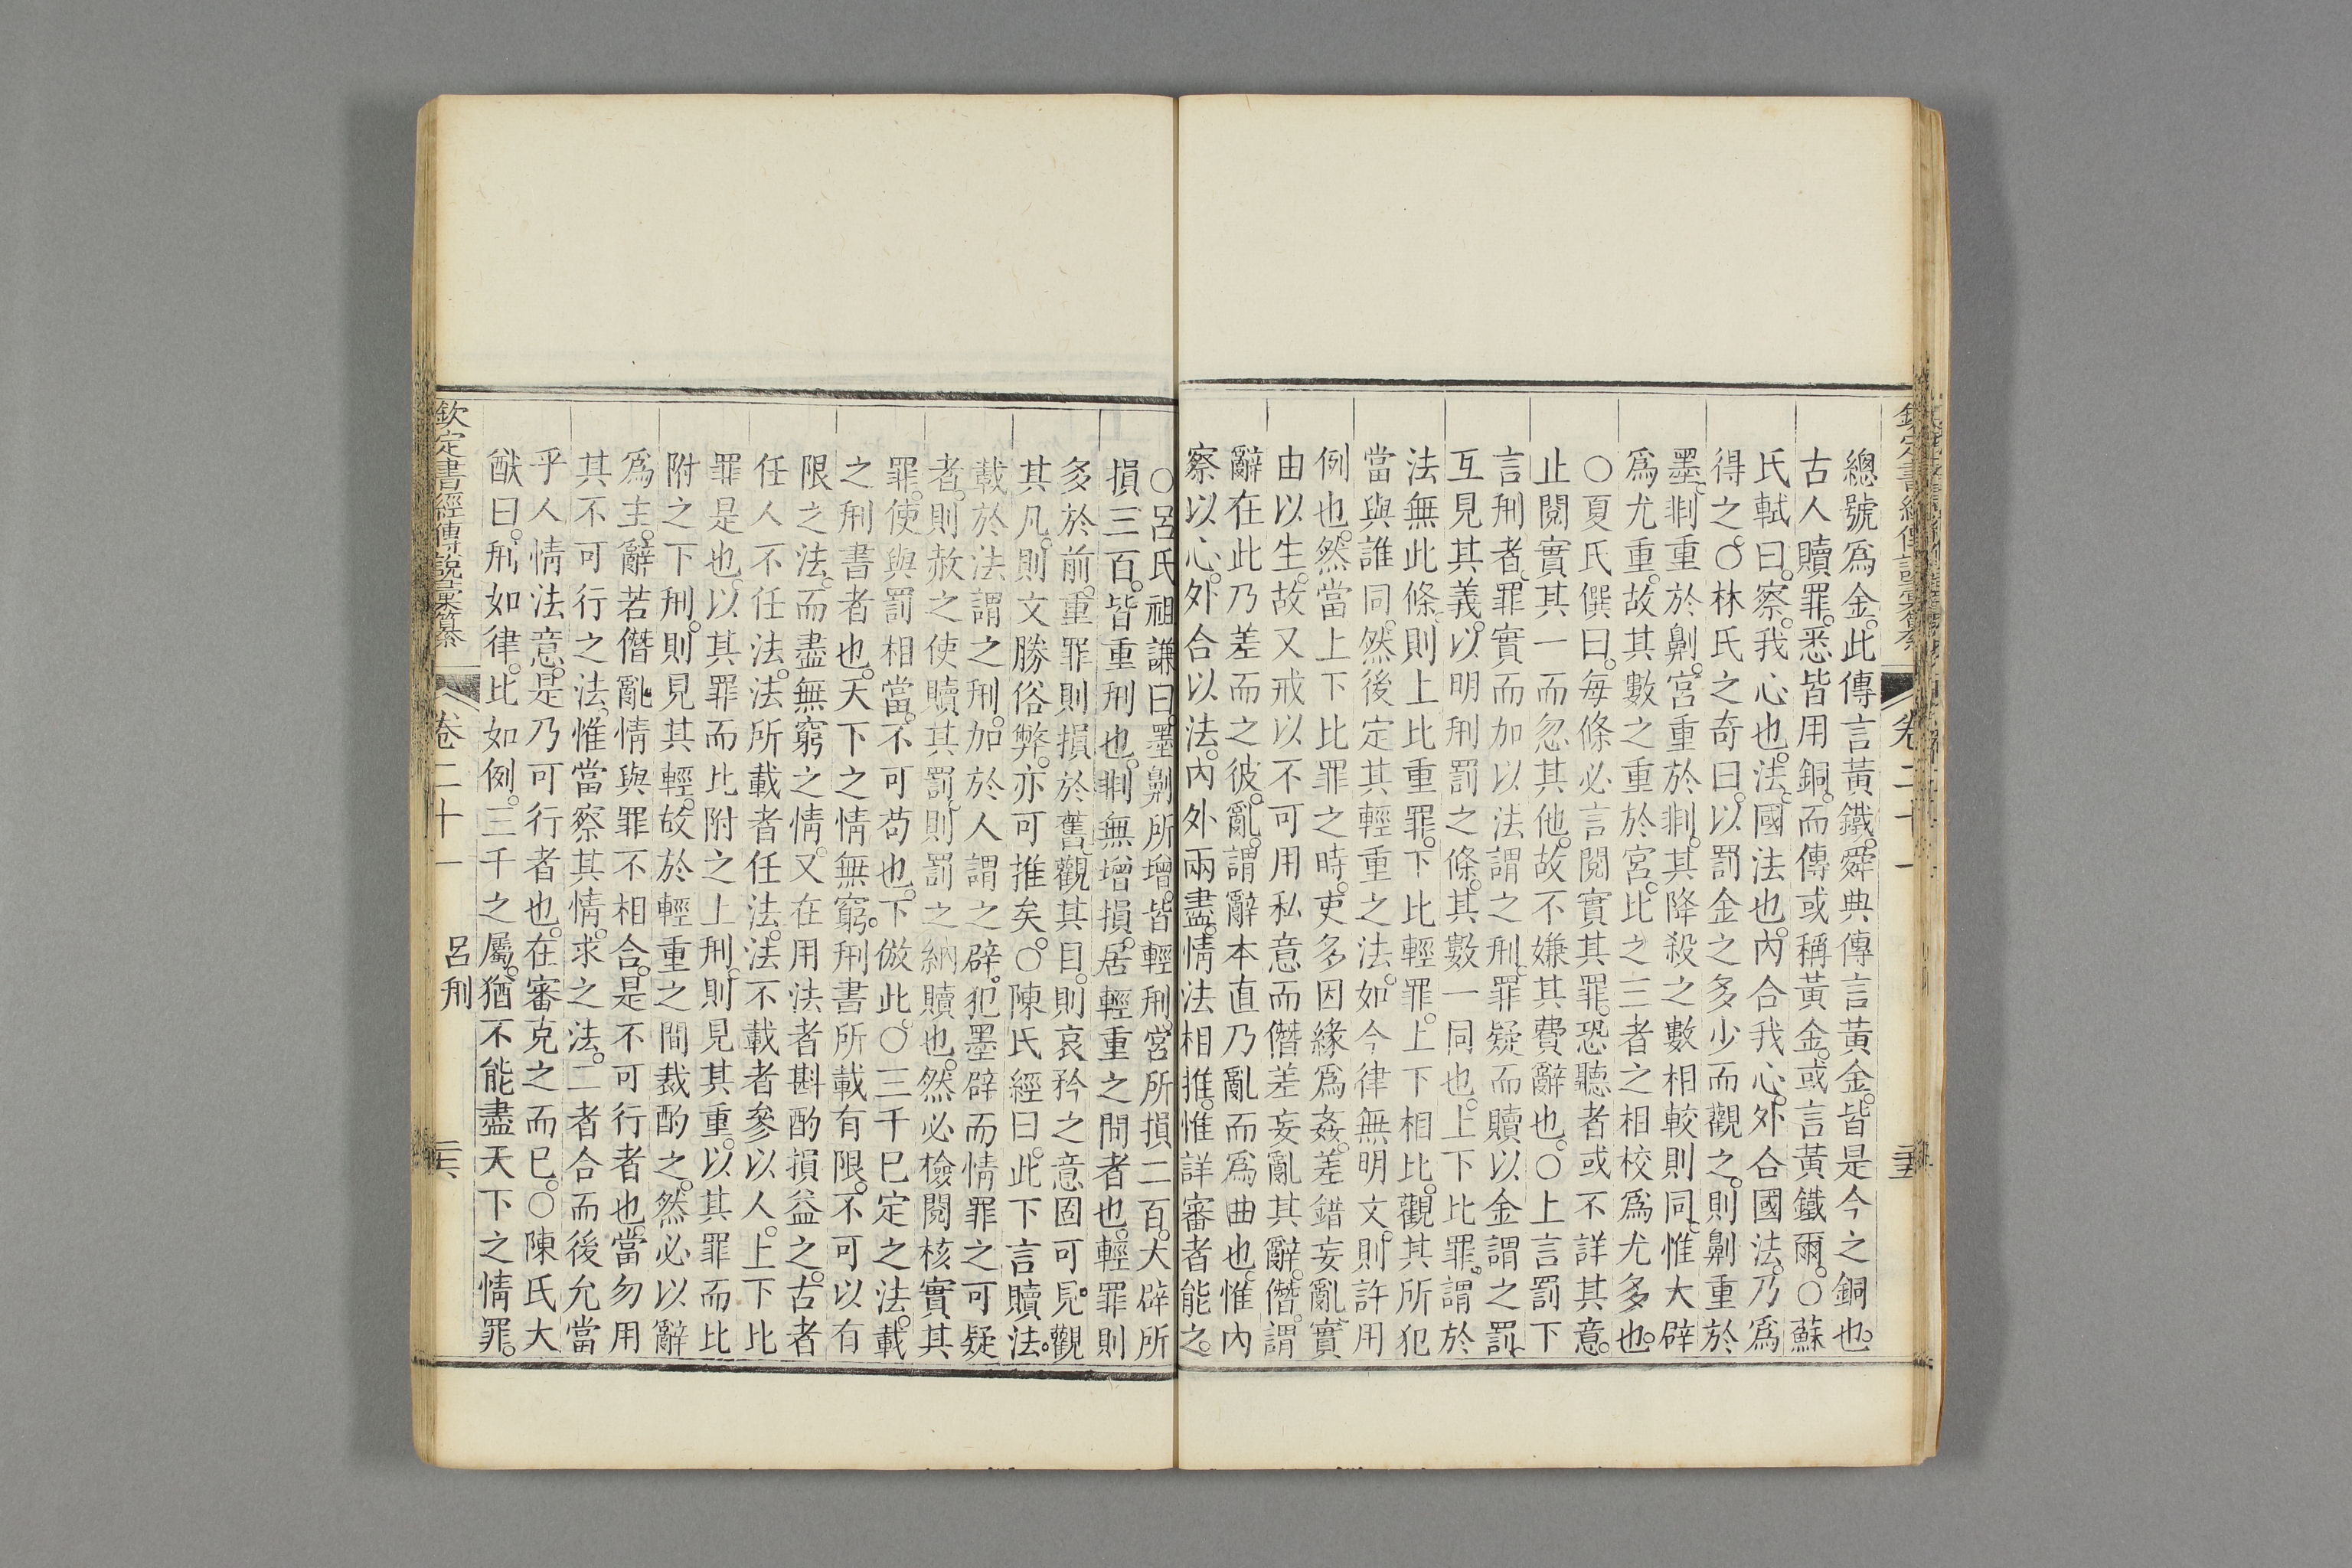 總號爲金。此傳言黃鐵。舜典傳言黃金。皆是今之銅也。
古人贖罪。悉皆用銅。而傳或稱黃金。或言黃鐵爾。○蘇
氏軾曰。察。我心也。法。國法也。內合我心。外合國法。乃爲
得之。○林氏之奇曰。以罰金之多少而觀之。則劓重於
墨。剕重於劓。宮重於剕。其降殺之數相較則同。惟大辟
爲尤重。故其數之重於宮。比之三者之相校爲尤多也。
○夏氏僎曰。每條必言閱實其罪。恐聽者或不詳其意。
止閱實其一而忽其他。故不嫌其費辭也。○上言罰下
言刑者。罪實而加以法謂之刑。罪疑而贖以金謂之罰。
互見其義。以明刑罰之條。其數一同也。上下比罪。謂於
法無此條。則上比重罪。下比輕罪。上下相比。觀其所犯
當與誰同。然後定其輕重之法。如今律無明文。則許用
例也。然當上下比罪之時。吏多因緣爲姦。差錯妄亂實
由以生。故又戒以不可用私意而僭差妄亂其辭。僭。謂
辭在此乃差而之彼。亂。謂辭本直乃亂而爲曲也。惟內
察以心。外合以法。內外兩盡。情法相推。惟詳審者能之。
○呂氏祖謙曰。墨劓所增。皆輕刑。宮所損二百。大辟所
損三百。皆重刑也。剕無增損。居輕重之間者也。輕罪則
多於前。重罪則損於舊。觀其目。則哀矜之意固可見。觀
其凡。則文勝俗弊。亦可推矣。○陳氏經曰。此下言贖法。
載於法謂之刑。加於人謂之辟。犯墨辟而情罪之可疑
者。則赦之使贖其罰。則罰之納贖也。然必檢閱核實其
罪。使與罰相當。不可苟也。下倣此。○三千已定之法。載
之刑書者也。天下之情無窮。刑書所載有限。不可以有
限之法。而盡無窮之情。又在用法者斟酌損益之。古者
任人不任法。法所載者任法。法不載者參以人。上下比
罪是也。以其罪而比附之上刑。則見其重。以其罪而比
附之下刑。則見其輕。故於輕重之間裁酌之。然必以辭
爲主。辭若僭亂。情與罪不相合。是不可行者也。當勿用
其不可行之法。惟當察其情。求之法。二者合而後允當
乎人情法意。是乃可行者也。在審克之而已。○陳氏大
猷曰。刑如律。比如例。三千之屬。猶不能盡天下之情罪。
欽定書經傳說彙纂 卷二十一 呂刑